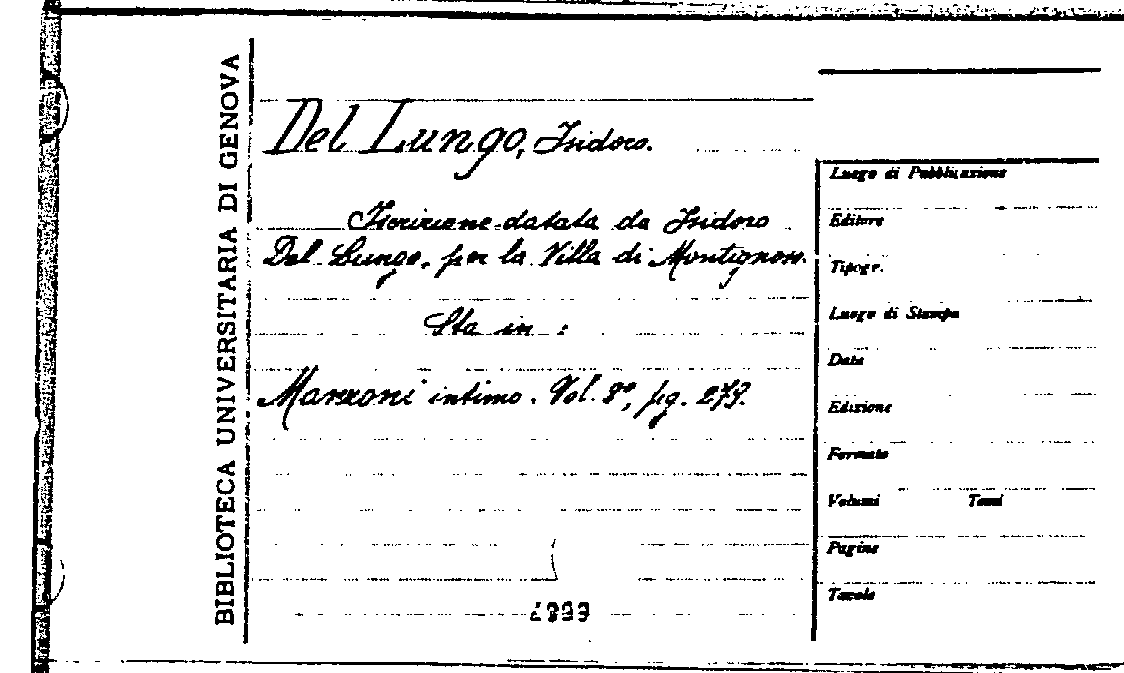 BIBLIOTECA UNIVERSITARIA DI GENOVA
Del Lungo, Isidoro.
Iscrizione datata da Isidoro
Del Lungo, per la Villa di Montignoso.
Sta in :
Manzoni intimo. Vol. 3°, pg. 279.
Luogo di Pubblicazione
Editore
Tipogr.
Luogo di Stampa
Data
Edizione
Formato
Volumi Tomi
Pagine
Tavole